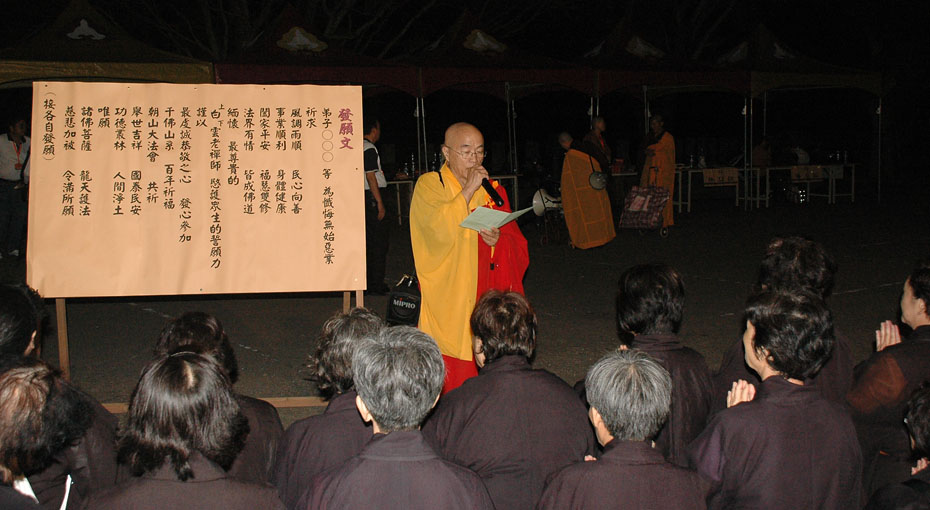 發願文
弟子○○○等 為懺悔無始惡業
祈求
風調雨順 民心向善
事業順利 身體健康
闔家平安 福慧雙修
法界有情 皆成佛道
緬懷 最尊貴的
上白下雲老禪師 愍護眾生的誓願力
謹以
最虔誠恭敬之心 發心參加
千佛山京 百年祈福
朝山大法會 共祈
舉世吉祥 國泰民安
功德叢林 人間淨土
唯願
諸佛菩薩 龍天護法
慈悲加被 令滿所願
(接各自發願)
MIPRO